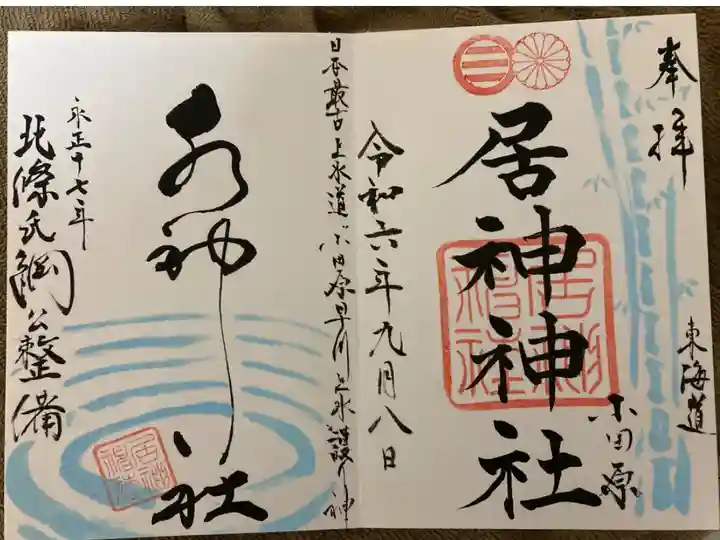 奉拝
東海道
小田原
居神神社
令和六年九月八日
日本最古上水道小田原早川上水護り神
水神社
永正十七年
北條氏綱公整備
居神神社